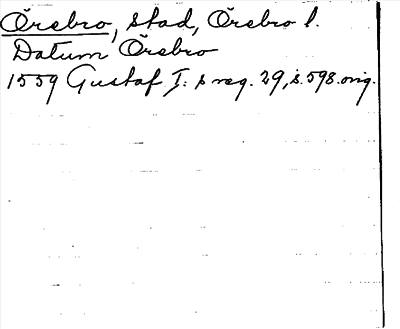 Örebro, stad, Örebro l.
Datum Örebro
1559 Gustaf I: s reg. 29, s. 598. orig.